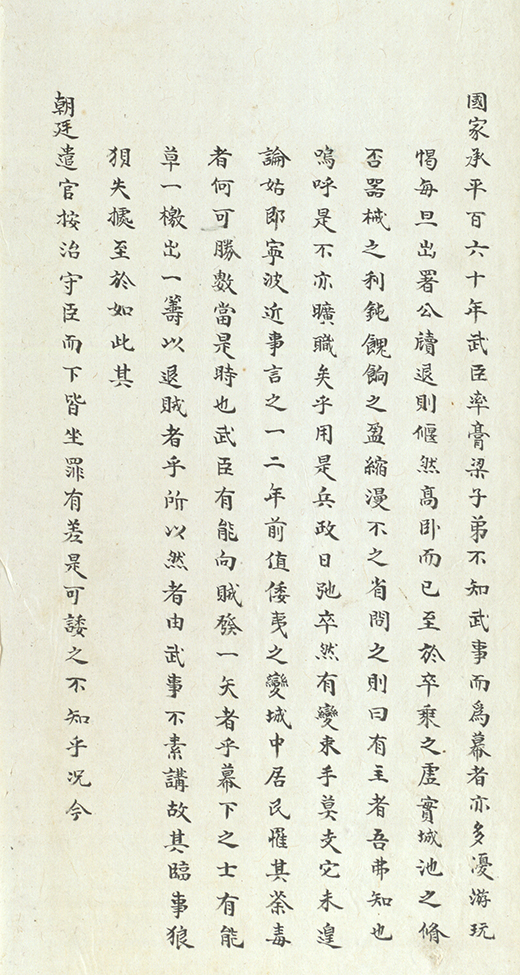 國家承平百六十年武臣率膏梁子弟不知武事而為幕者亦多憂游玩
愒每旦出署公牘退則偃然髙卧而已至於卒乗之虛實城池之脩
否器械之利鈍餽餉之盈縮漫不之省問之則曰有主者吾弗知也
嗚呼是不亦曠職矣乎用是兵政日弛卒然有變束手莫支它未遑
論姑即寧波近事言之一二年前值倭夷之變城中居民罹其荼毒
者何可勝數當是時也武臣有能向賊發一矢者乎幕下之士有能
草一檄出一籌以退賊者乎所以然者由武事不素講故其臨事狼
狽失據至於如此其
朝廷遣官按治守臣而下皆坐罪有差是可諉之不知乎况今